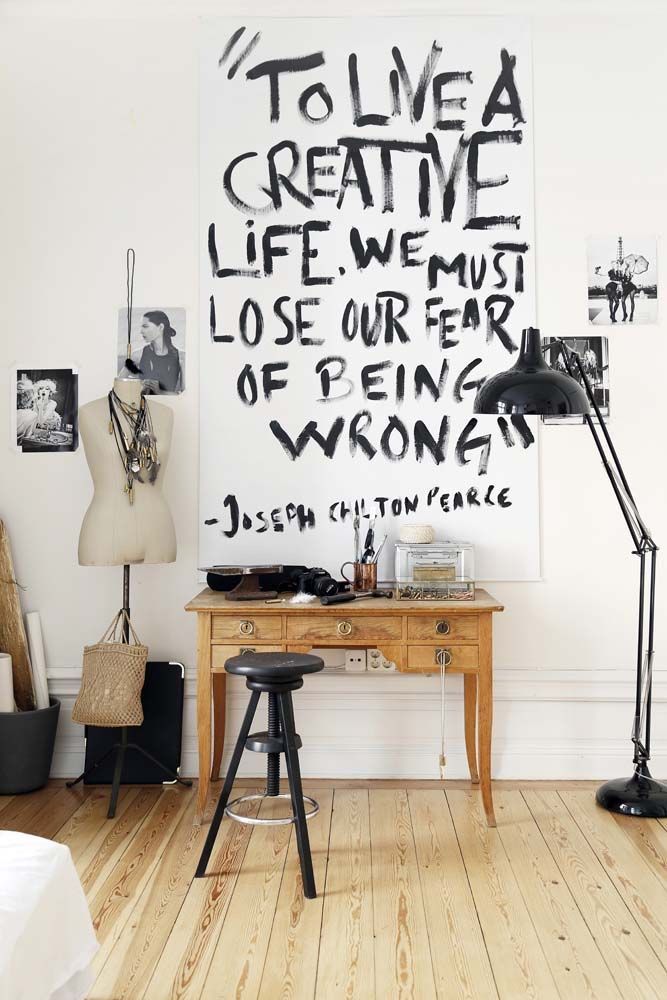 "TO LIVE A
CREATIVE
LIFE. WE MUST
LOSE OUR FEAR
OF BEING
WRONG"
-JOSEPH CHILTON PEARCE